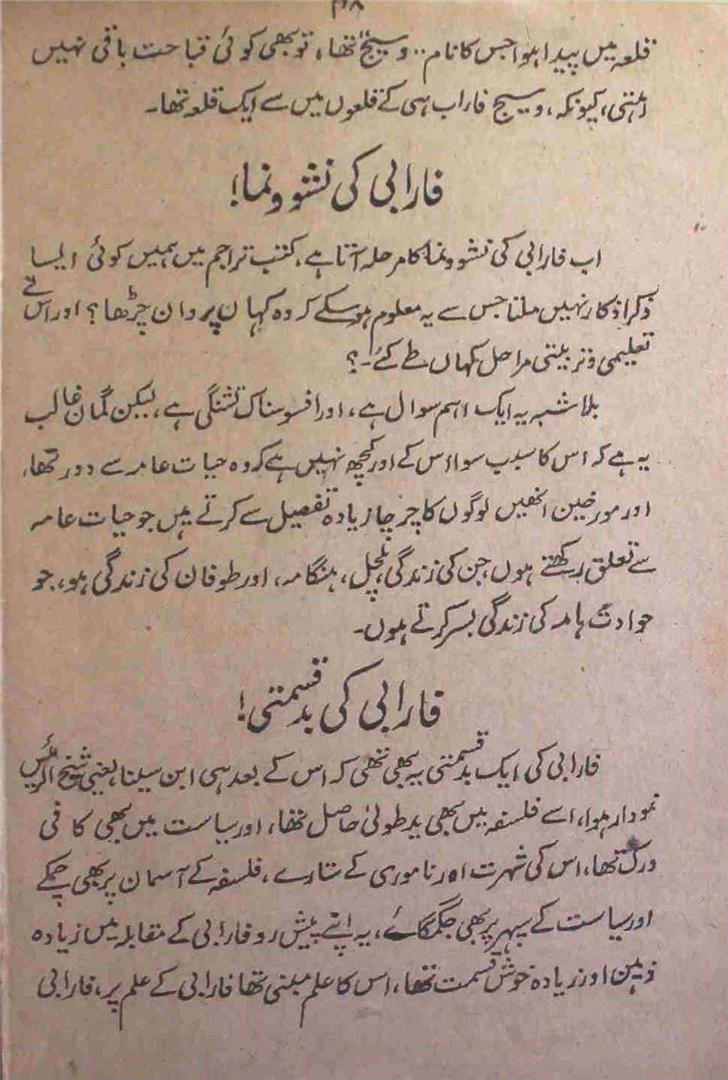 ۴۸
قلعہ میں پیدا ہوا جس کا نام ،، وسیج تھا، تو بھی کوئی قباحت باقی نہیں
رہتی، کیونکہ، وسیج فاراب ہی کے قلعوں میں سے ایک قلعہ تھا۔
فارابی کی نشو و نما!
اب فارابی کی نشو و نما کا مرحلہ آتا ہے، کتب تراجم میں ہمیں کوئی ایسا
ذکر اذکار نہیں ملتا جس سے یہ معلوم ہو سکے کہ وہ کہاں پروان چڑھا؟ اور اس نے
تعلیمی و تربیتی مراحل کہاں طے کئے۔؟
بلا شبہ یہ ایک اہم سوال ہے، اور افسوسناک تشنگی ہے، لیکن گمان غالب
یہ ہے کہ اس کا سبب سوا اس کے اور کچھ نہیں ہے کہ وہ حیات عامہ سے دور تھا،
اور مورخین انھیں لوگوں کا چرچا زیادہ تفصیل سے کرتے ہیں جو حیات عامہ
سے تعلق رکھتے ہوں جن کی زندگی ہلچل، ہنگامہ، اور طوفان کی زندگی ہو، جو
حوادث ہامہ کی زندگی بسر کرتے ہوں۔
فارابی کی بدقسمتی!
فارابی کی ایک بدقسمتی یہ بھی تھی کہ اس کے بعد ہی ابن سینا یعنی شیخ الرئیس
نمودار ہوا، اسے فلسفہ میں بھی ید طولیٰ حاصل تھا، اور سیاست میں بھی کافی
درک تھا، اس کی شہرت اور ناموری کے ستارے، فلسفہ کے آسمان پر بھی چمکے
اور سیاست کے سپہر پر بھی جگمگائے، یہ اپنے پیش رو فارابی کے مقابلہ میں زیادہ
ذہین اور زیادہ خوش قسمت تھا، اس کا علم مبنی تھا فارابی کے علم پر، فارابی